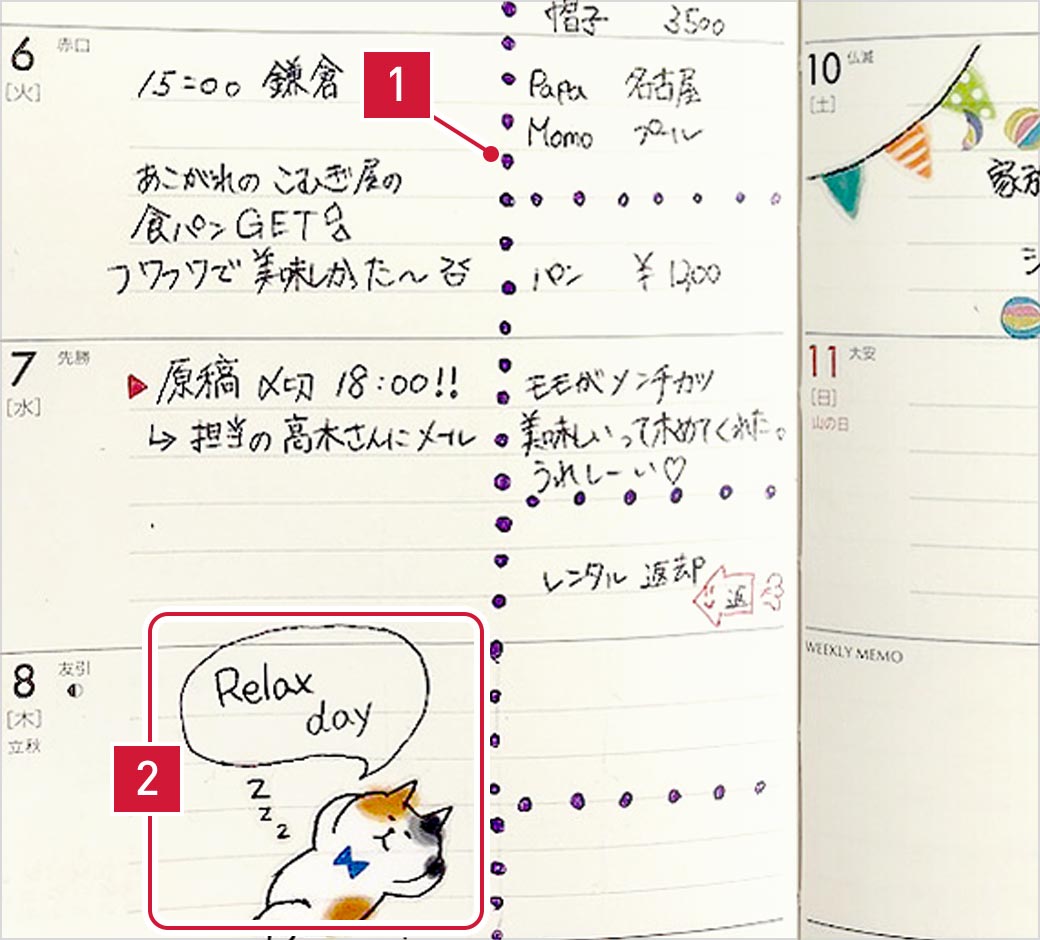 帽子 3500
6 赤口
[火]
15:00 鎌倉
1
Papa 名古屋
Momo プール
あこがれの こむぎ屋の
食パン GET
フワフワで 美味しかった〜
パン ¥1,200
7 先勝
[水]
原稿 〆切 18:00!!
↳ 担当の 高木さんにメール
モモがメンチカツ
美味しいって木めてくれた。
うれしーい♡
レンタル 返却
返
8 友引
[木]
立秋
2
Relax
day
z
z
z
10 仏滅
[土]
家族
11 大安
[日]
山の日
WEEKLY MEMO